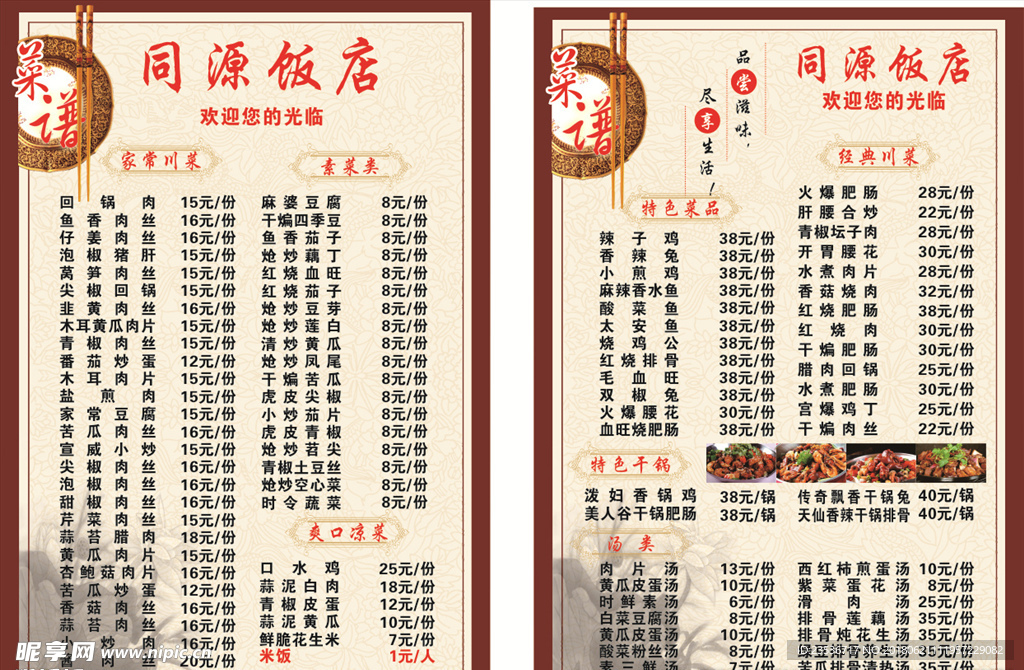 菜谱
同源饭店
欢迎您的光临
家常川菜
回锅肉 15元/份
鱼香肉丝 16元/份
仔姜肉丝 16元/份
泡椒猪肝 15元/份
莴笋肉丝 15元/份
尖椒回锅 15元/份
韭黄肉丝 16元/份
木耳黄瓜肉片 15元/份
青椒肉丝 16元/份
番茄炒蛋 12元/份
木耳肉片 15元/份
盐煎肉 15元/份
家常豆腐 15元/份
苦瓜肉丝 16元/份
宣威小炒 15元/份
尖椒肉丝 16元/份
泡椒肉丝 16元/份
甜椒肉丝 16元/份
芹菜肉丝 15元/份
蒜苔腊肉 18元/份
黄瓜肉片 15元/份
杏鲍菇肉片 16元/份
苦瓜炒蛋 12元/份
香菇肉丝 16元/份
蒜苔肉丝 16元/份
小炒肉 16元/份
20元/份
素菜类
麻婆豆腐 8元/份
干煸四季豆 8元/份
鱼香茄子 8元/份
炝炒藕丁 8元/份
红烧血旺 8元/份
红烧茄子 8元/份
炝炒豆芽 8元/份
炝炒莲白 8元/份
清炒黄瓜 8元/份
炝炒凤尾 8元/份
干煸苦瓜 8元/份
虎皮尖椒 8元/份
小炒茄片 8元/份
虎皮青椒 8元/份
炝炒苕尖 8元/份
青椒土豆丝 8元/份
炝炒空心菜 8元/份
时令蔬菜 8元/份
爽口凉菜
口水鸡 25元/份
蒜泥白肉 18元/份
青椒皮蛋 12元/份
蒜泥黄瓜 10元/份
鲜脆花生米 7元/份
米饭 1元/人
菜谱
品尝滋味，
尽享生活！
同源饭店
欢迎您的光临
特色菜品
辣子鸡 38元/份
香辣兔 38元/份
小煎鸡 38元/份
麻辣香水鱼 38元/份
酸菜鱼 38元/份
太安鱼 38元/份
烧鸡公 38元/份
红烧排骨 38元/份
毛血旺 38元/份
双椒兔 38元/份
火爆腰花 30元/份
血旺烧肥肠 38元/份
经典川菜
火爆肥肠 28元/份
肝腰合炒 22元/份
青椒坛子肉 28元/份
开胃腰花 30元/份
水煮肉片 28元/份
香菇烧肉 32元/份
红烧肥肠 38元/份
红烧肉 30元/份
干煸肥肠 30元/份
腊肉回锅 25元/份
水煮肥肠 30元/份
宫爆鸡丁 25元/份
干煸肉丝 22元/份
特色干锅
泼妇香锅鸡 38元/锅
美人谷干锅肥肠 38元/锅
传奇飘香干锅兔 40元/锅
天仙香辣干锅排骨 40元/锅
汤类
肉片汤 13元/份
黄瓜皮蛋汤 10元/份
时鲜素汤 6元/份
白菜豆腐汤 8元/份
黄瓜皮蛋汤 10元/份
酸菜粉丝汤 8元/份
素三鲜汤 7元/份
西红柿煎蛋汤 10元/份
紫菜蛋花汤 8元/份
滑肉汤 25元/份
排骨莲藕汤 35元/份
排骨炖花生汤 35元/份
苦瓜排骨清热汤 35元/份
昵享网 www.nipic.cn